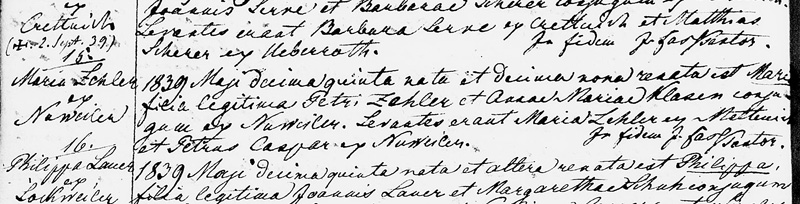 Joannis Serve et Barbarae Scherer conjugum ex
Crettnich
Levantes erant Barbara Serve ex Crettnich et Matthias
(2. Sept. 39.)
Scherer ex Ueberroth. In fidem J. Fass Pastor.
15.
Maria Zehler
ex
Nuweiler
1839 Maji decima quinta nata et decima nona renata est Maria
filia legitima Petri Zehler et Annae Mariae Klasen conju-
gum ex Nuweiler. Levantes erant Maria Zehler ex
et Petrus Caspar ex Nuweiler. In fidem J. Fass Pastor.
16.
Philippa Lauer
ex
Lochweiler
1839 Maji decima quinta nata et altera renata est Philippa,
filia legitima Joannis Lauer et Margarethae Schuh conjugum